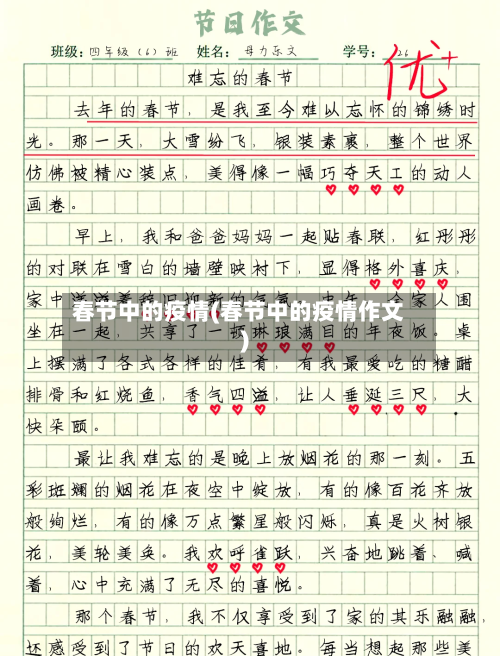 节日作文
班级：四年级（6）班 姓名：毋力乐文 学号：26
优+
难忘的春节
去年的春节，是我至今难以忘怀的锦绣时
光。那一天，大雪纷飞，银装素裹，整个世界
仿佛被精心装点，美得像一幅巧夺天工的动人
画卷。
早上，我和爸爸妈妈一起贴春联，红彤彤
的对联在雪白的墙壁映衬下，显得格外喜庆，
家中
人围
春节中的疫情(春节中的疫情作文
)
坐在一起，共享了一顿琳琅满目的年夜饭。桌
上摆满了各式各样的佳肴，有我最爱吃的糖醋
排骨和红烧鱼，香气四溢，让人垂涎三尺，大
快朵颐。
最让我难忘的是晚上放烟花的那一刻。五
彩斑斓的烟花在夜空中绽放，有的像百花齐放
般绚烂，有的像万点繁星般闪烁，真是火树银
花，美轮美奂。我欢呼雀跃，兴奋地跳着、喊
着，心中充满了无尽的喜悦。
那个春节，我不仅享受到了家的其乐融融，
还感受到了节日的欢天喜地。每当想起那些美